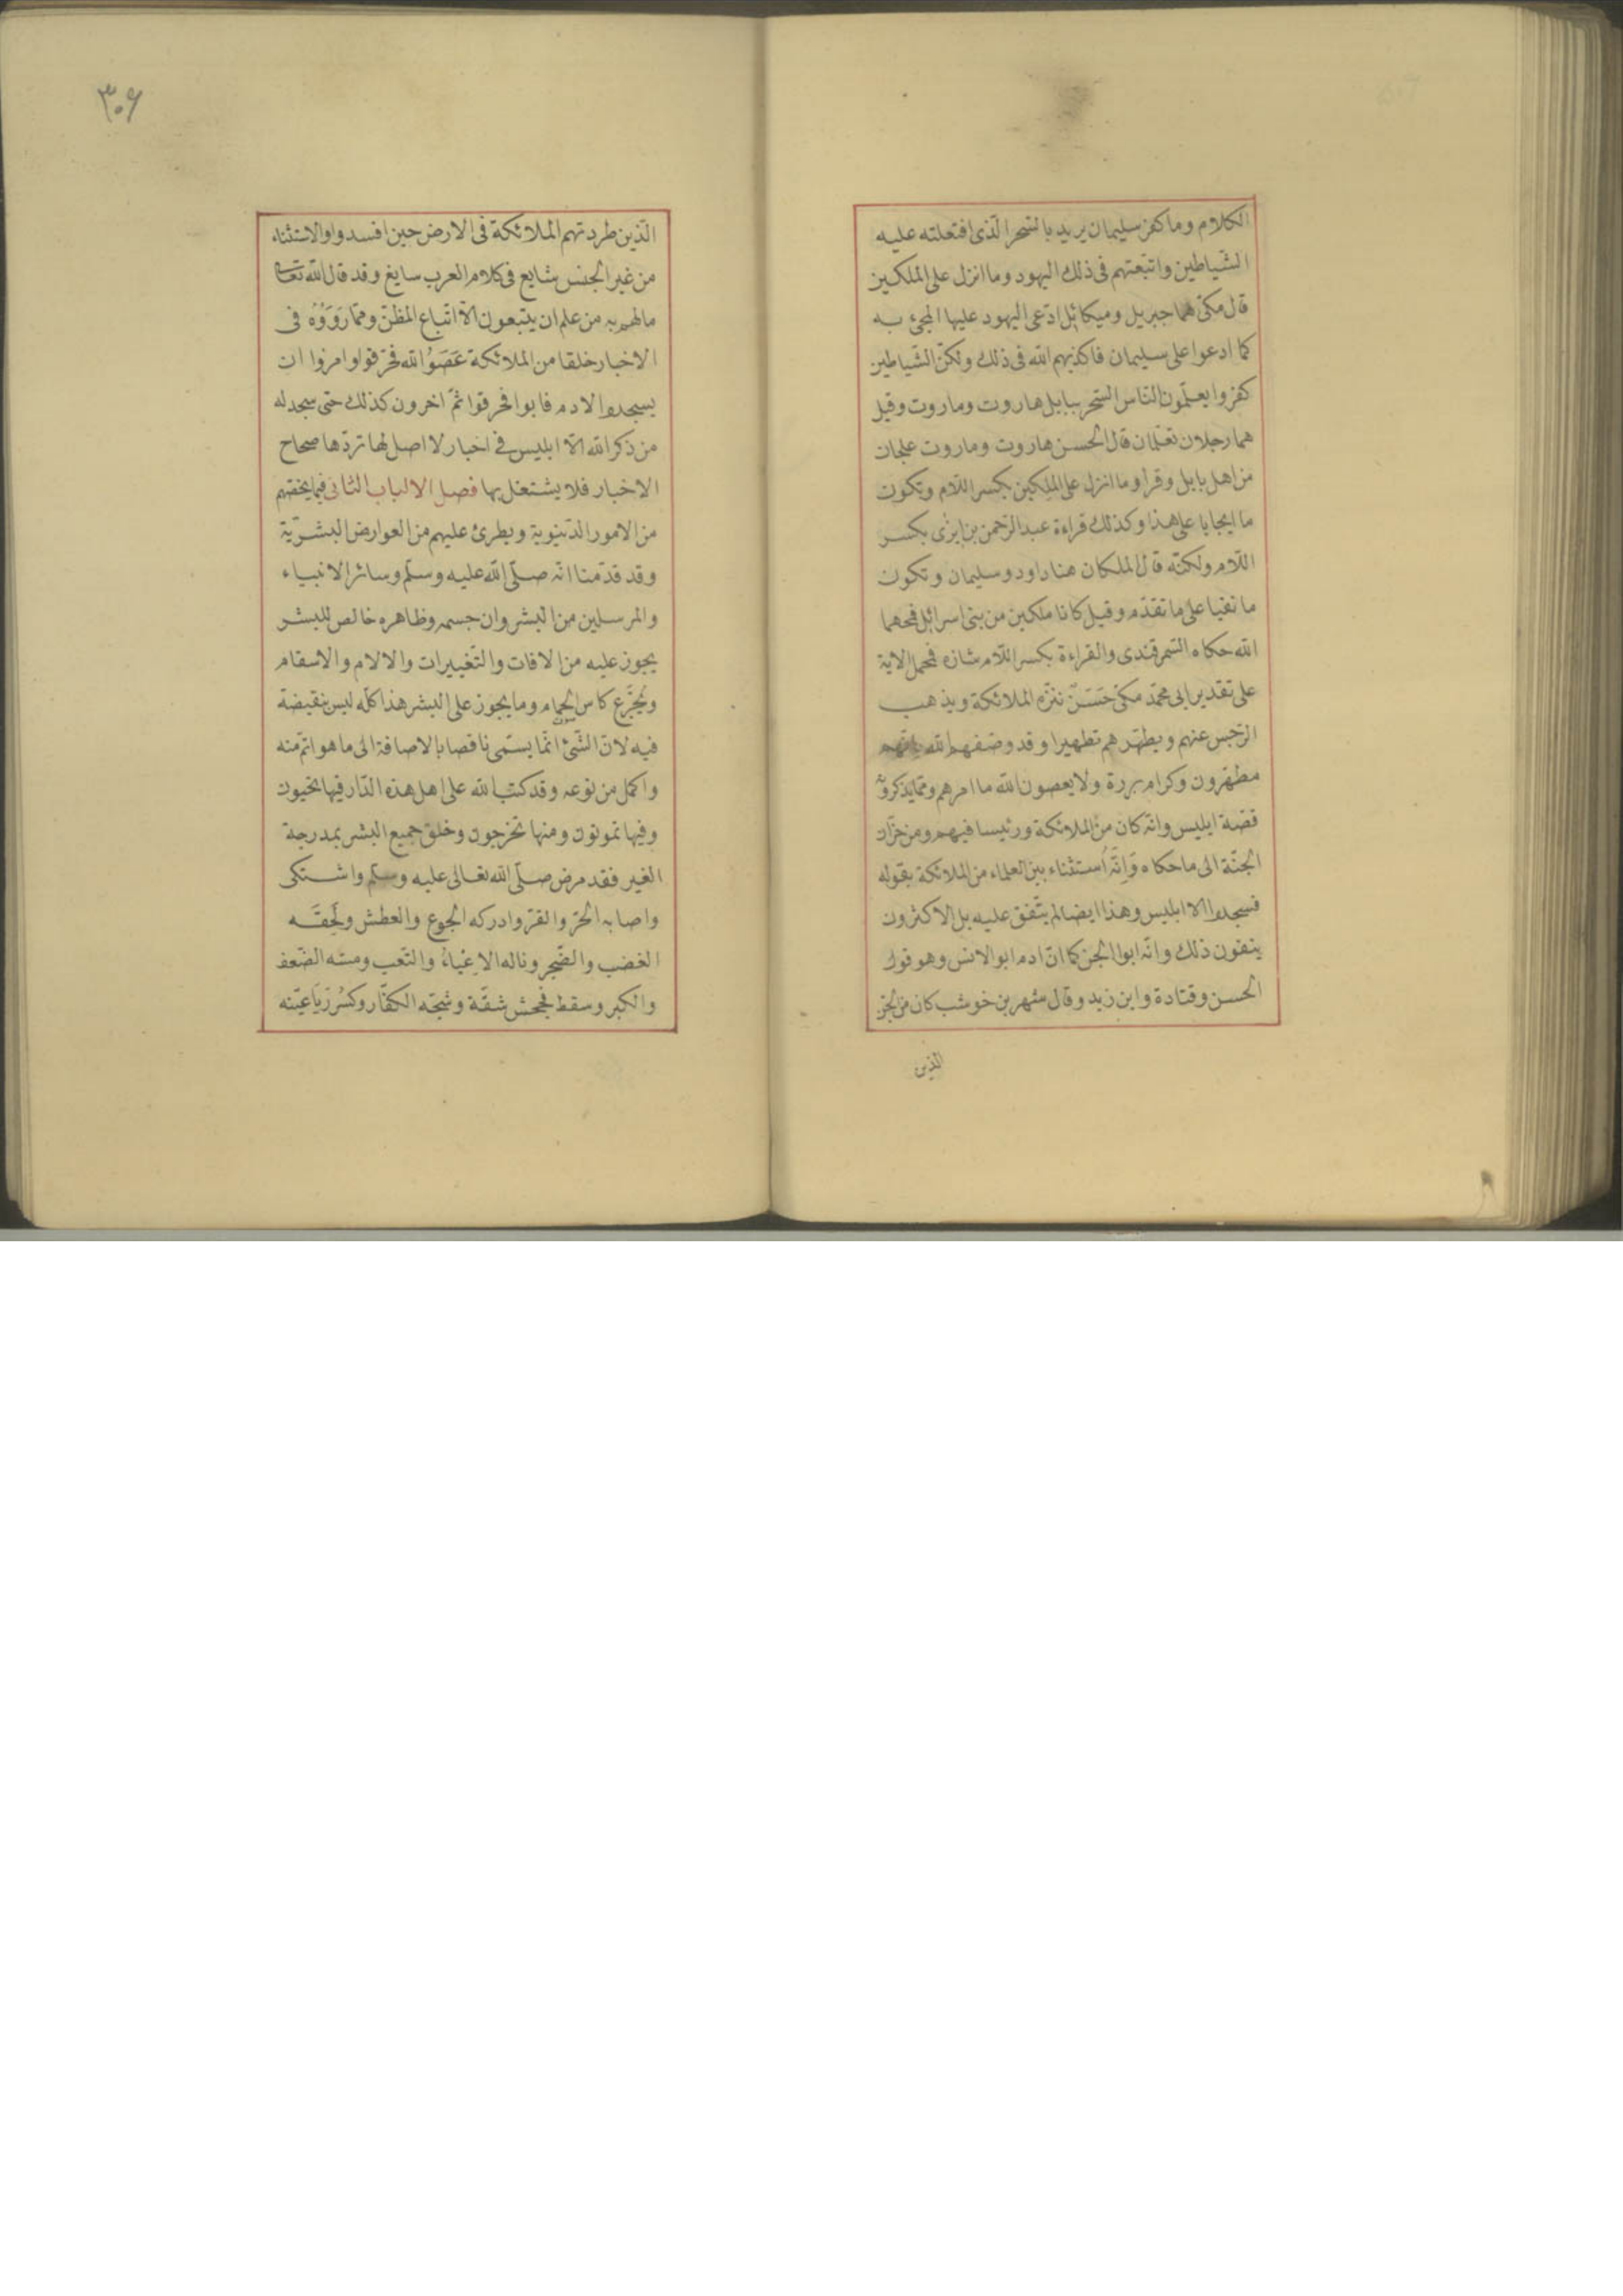 الكلام وما كفر سليمان يريد بالسّحر الّذى افتعلته عليه
الشّياطين واتبعتهم فى ذلك اليهود وما انزل على الملكين
قال مكىّ هما جبريل وميكائل ادّعى اليهود عليها المجىء به
كما ادعوا على سليمان فاكذبهم الله فى ذلك ولكنّ الشّياطين
كفروا يعلّمون النّاس السّحر ببابل هاروت وماروت وقيل
هما رجلان تعلّمان قال الحسن هاروت وماروت علجان
من اهل بابل وقرا وما انزل على الملِكين بكسر اللّام وتكون
ما ايجابا على هذا وكذلك قراءة عبد الرّحمن بن ابزى بكسر
اللّام ولكنّه قال الملكان هنا داود وسليمان وتكون
ما نفيا على ما تقدّم وقيل كانا ملكين من بنى اسرائل فمحهما
الله حكاه السّمرقندى والقراءة بكسر اللّام شاذه فمحمل الاية
على تقدير ابى محمّد مكىّ حَسَنٌ ننزّه الملائكة ويذهب
الرّجس عنهم ويطهّرهم تطهيرا وقد وصفهم الله بانّهم
مطهّرون وكرام بررة ولا يعصون الله ما امرهم وممّا يذكرونه
قصّة ابليس وانّه كان من الملائكة ورئيسا فيهم ومن خزّان
الجنّة الى ما حكاه وَانّه استثناء بين العلماء من الملائكة بقوله
فسجدوا الا ابليس وهذا ايضا لم يتّفق عليه بل الاكثرون
ينفون ذلك وانّه ابوا الجن كما انّ ادم ابو الانس وهو قول
الحسن وقتادة وابن زيد وقال شهر بن خوشب كان من الجن
الذين
٣٠٦
الّذين طردتهم الملائكة فى الارض حين افسدوا والاستثناء
من غير الجنس شايع فى كلام العرب سايغ وقد قال الله تعا
ما لهم به من علم ان يتبعون الّا اتباع الظنّ وممّا رَوَوْهُ فى
الاخبار خلقا من الملائكة عَصَوُا الله فحرّقوا وامروا ان
يسجدوا لادم فابوا فحرقوا ثمّ اخرون كذلك حتى سجد له
من ذكر الله الّا ابليس فى اخبار لا اصل لها تردّها صحاح
الاخبار فلا يشتغل بها فصل الالباب الثانى فيما يخصّهم
من الامور الدّنيوية ويطرئ عليهم من العوارض البشريّة
وقد قدّمنا انّه صلّى الله عليه وسلّم وسائر الانبياء
والمرسلين من البشر وان جسمه وظاهره خالص للبشر
يجوز عليه من الافات والتّغييرات والالام والاسقام
وتُجَرّعِ كاس الحِمام وما يجوز على البشر هذا كلّه ليس بنقيضة
فيه لانّ الشّئ انّما يسمّى ناقصا بالاضافة الى ما هو اتمّ منه
واكمل من نوعه وقد كتب الله على اهل هذه الدّار فيها تحيون
وفيها تموتون ومنها تخرجون وخلق جميع البشر بمدرجة
الغير فقد مرض صلّى الله تعالى عليه وسلّم واشتكى
واصابه الحرّ والقرّ وادركه الجوع والعطش ولَحِقَه
الغضب والضّجر وناله الاعياءُ والتّعب ومسّه الضّعف
والكبر وسقط فجحش شقّة وشجّه الكفّار وكسُر رَبَاعيّته